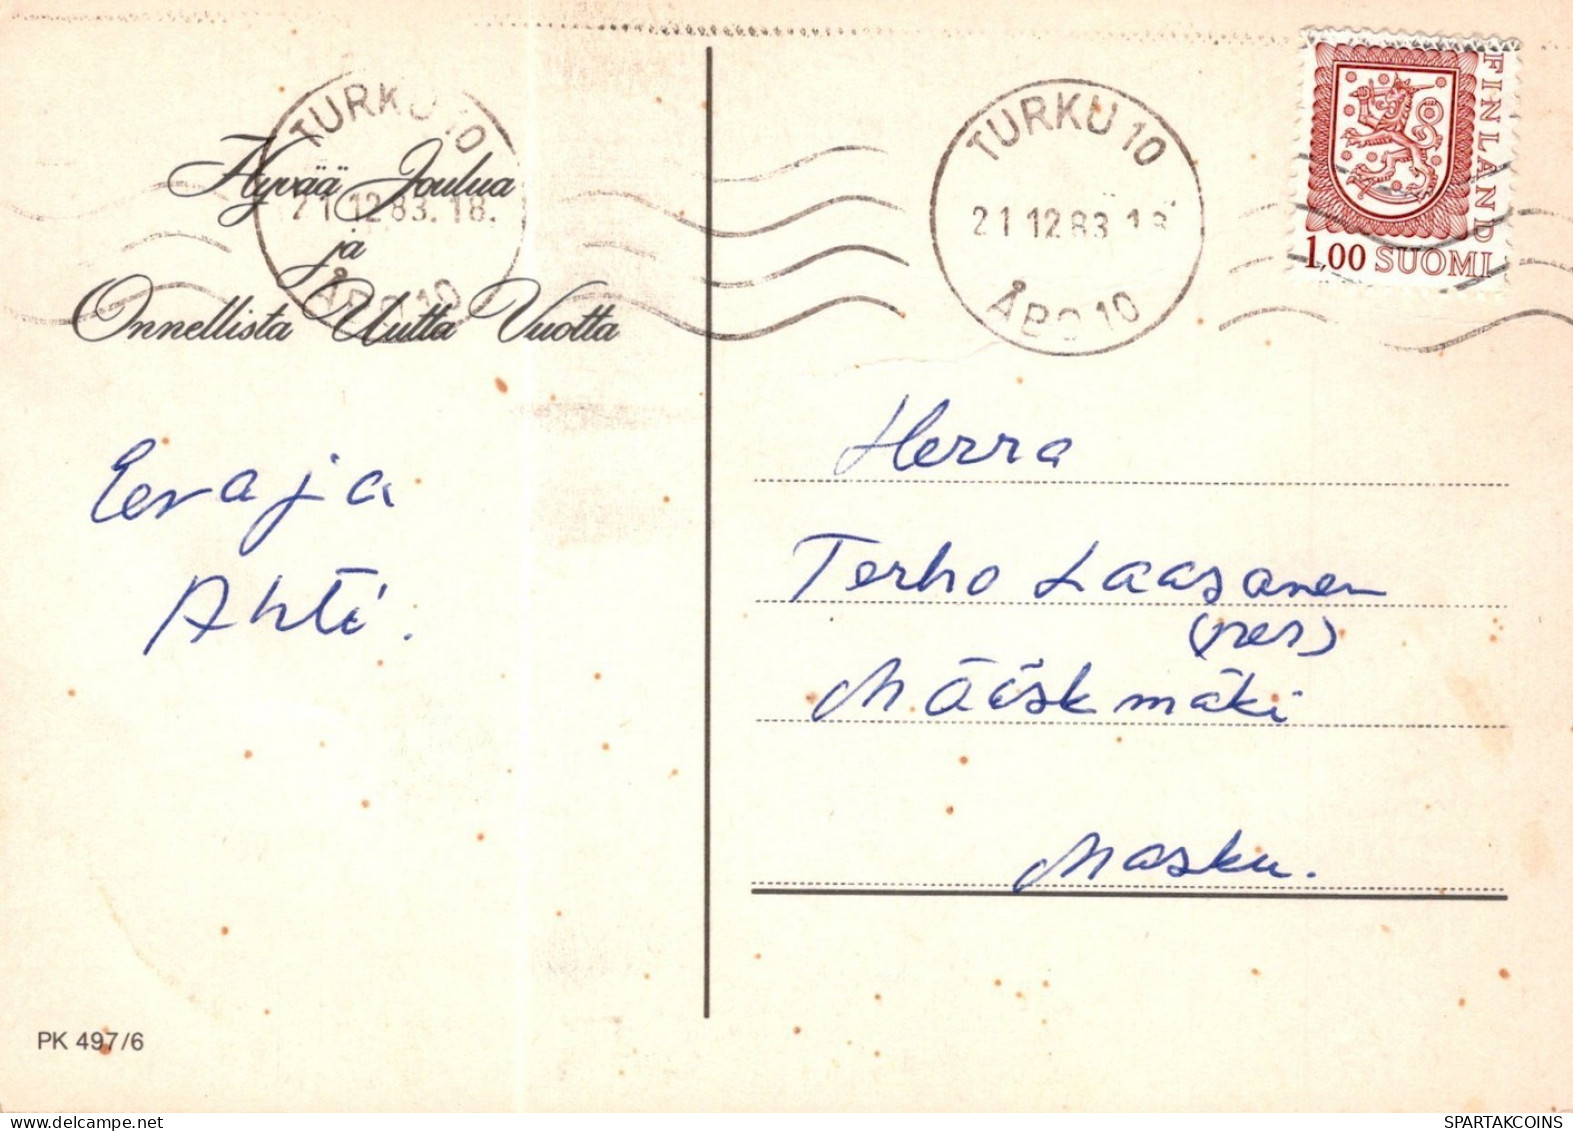 TURKU 10
21.12.83.18.
ÅBO 10
Hyvää Joulua
ja
Onnellista Uutta Vuotta
Eeva ja
Ahti.
PK 497/6
TURKU 10
21 12 83 18
ÅBO 10
FINLAND
1,00 SUOMI
Herra
Terho Laasanen
Määskmäki
Masku.
SPARTAKCOINS